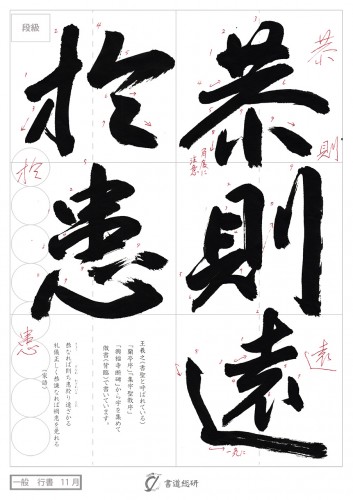 恭則遠
於患
恭
則
遠
於
患
角度に
注意
一気に
段級
王羲之(書聖と呼ばれている)
「蘭亭序」「集字聖教序」
「興福寺断碑」から字を集めて
倣書(背臨)で書いています。
恭なれば則ち患於り遠ざかる
礼儀正しく恭謙なれば禍患を免れる
(家語)
一般 行書 11月
書道総研